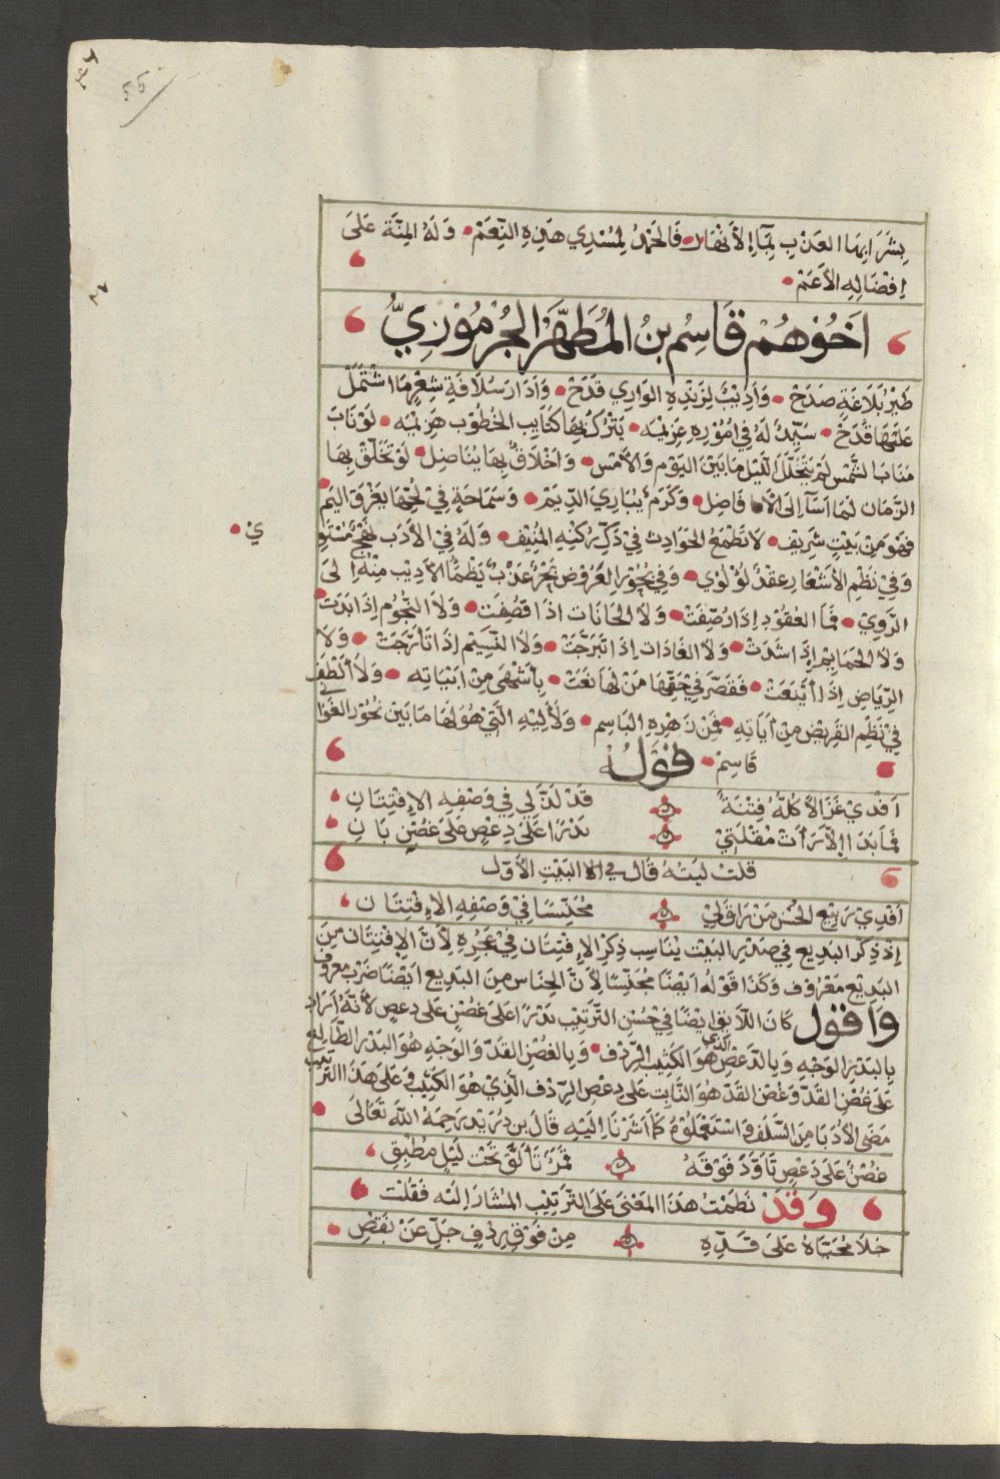 55
بِشَرَابِهَا العَذْبِ لِمَاءِ الأَنْهَارِ فَالحَمْدُ لِمُسْدِي هَذِهِ النِّعَمْ وَلَهُ المِنَّة عَلَى
إفْضَالِهِ الأَعَمْ
اَخُوْهُمْ قَاسِم بنُ المُطَهَّرْ الجُرْمُوْزِيُّ
طَيْرُ بَلَاغَةٍ صَدَحْ وَاَدِيْبٌ لِزَنْدِهِ الوَارِي قَدَحْ وَاَدَارَ سُلَافَةِ شِعْرٍ مَا اشْتَمَلَ
عَلَيْهَا قَدَحْ سَيِّدٌ لَهُ فِي اُمُوْرِهِ عَزِيْمَه يَتْرُكُ بِهَا كَتَايِب الخُطُوْب هَزِيْمَه لَوْ نَابَ
مَنَابَ الشَّمْس لَمْ يَتَخَلَّلْ اللَّيْل مَا بَيْنَ اليَوْم وَالأَمْس وَاَخْلَاقٌ بِهَا يُنَاضِل لَوْ تَخَلَّقَ بِهَا
الزَّمَان لَمَا اَسَآ اِلَى الأَفَاضِل وَكَرَمٌ يُبَارِي الدِّيَمْ وَسَمَاحَةٍ فِيْ لُجِّهَا يَغْرَق اليَم
فَهْوَ مِنْ بَيْتٍ شَرِيْف لَا تَطْمَعُ الحَوَادِث فِيْ دَكِّ رُكْنِهِ المُنِيْف وَلَهُ فِي الأَدَب نَهْجٌ مُسْتَوِ
يْ
وَفِيْ نَظْمِ الأَشْعَارِ عِقْدٌ لُؤْلُوْي وَفِيْ بُحُوْرِ العَرُوْض بَحْرٌ عَذْبٌ يَظْمَأُ الأَدِيْب مِنْهُ اِلَى
الرَّوِيْ فَمَا العُقُوْد اِذَا رُصِّفَتْ وَلَا الحَانَات اِذَا قُصِفَت وَلَا النُّجُوْم اِذَا بَدَتْ
وَلَا الحَمَايِمْ اِذَا شَدَتْ وَلَا الغَادَات اِذَا تَبَرَّجَتْ وَلَا النَّسِيْم اِذَا تَأَرَّجَتْ وَلَا
الرِّيَاض اِذَا أَيْنَعَتْ فَقَصَّرَ فِيْ حَقِّهَا مَنْ لَهَا نَعَتْ بِأَشْهَى مِنْ اَبْيَاتِه وَلَا أَلْطَفَ
فِيْ نَظْمِ القَرِيْض مِنْ آيَاتِهِ فَمِنْ زَهْرِهِ البَاسِم وَلَآلِيْهِ الَّتِيْ هُوَ لَهَا مَا بَيْن نُحُوْر الغَوَا
نِي قَاسِمْ قَوْلُهُ
اَفْدِيْ غَزَالاً كُلُّهُ فِتْنَةٌ قَدْ لَذَّ لِي فِي وَصْفِهِ الإِفْتِتَان
فَمَا بَدَا اِلاَّ رَأَتْ مُقْلَتِيْ بَدْرًا عَلَى دِعْصٍ عَلَى غُصْنِ بَان
قلت ليته قَالَ في الاالبَيْتِ الأَوّل
اَفْدِيْ بَدِيْع الحُسْن مَنْ رَاقَ لِيْ مُجَنِّسًا فِيْ وَصْفِهِ الاِفْتِتَان
إِذْ ذِكْر البَدِيع فِي صَدْرِ البَيْت يُنَاسِب ذِكْرِ الإِفْتِتَان فِيْ عَجُزِهِ لِأَنَّ الإِفْتِتَان مِنَ
البَدِيْع مَعْرُوف وَكَذَا قَوْلُهُ اَيْضًا مُجَنِّسًا لِأَنَّ الجِنَاس مِنَ البَدِيْع اَيْضًا ضَرْبٌ مَعْرُوْف
وَاَقُوْلُ كَانَ اللَّايق اَيْضًا فِيْ حُسْنِ التَّرْتِيْب بَدْرًا عَلَى غُصْنٍ عَلَى دِعصٍ لأَنَّهُ اَرَادَ
بِالبَدْرِ الوَجْهِ وَبِالدِّعْصِ الَّذِي هُوَ الكَثِيْب الرِّدْف وَبِالغُصْنِ القَدّ وَالوَجْهِ هُوَ البَدْر الطَّالِع
عَلَى غُصْنِ القَدّ وَغُصْن القَدّ هُوَ الثَّابِت عَلَى دِعْصِ الرِّدْف الَّذِيْ هُوَ الكَثِيْب وَعَلَى هَذَا التَّرْتِيْب
مَضَى الأُدَبَا مِنَ السَّلَف وَاسْتَعْمَلُوْهُ كَمَا اَشَرْنَا اِلَيْهِ قَالَ بن دُرَيْد رَحِمَهُ اللهُ تَعَالَى
غُصْنٌ عَلَى دِعْصٍ تَأَوَّدَ فَوْقَهُ قَمَرٌ تَأَلَّقَ تَحْت لَيْلٍ مُطْبِقِ
وَقَدْ نَظَمْتُ هَذَا المَعْنَى عَلَى التَّرْتِيْب المُشَار اِلَيْه فَقُلْت
حَلَا مُحَيَّاهُ عَلَى قَدِّهِ مِنْ فَوْقِ رِدْفٍ جَلَّ عَنْ نَقْصِ